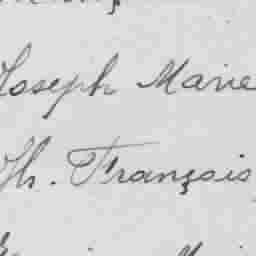 Joseph Marie
Th. François